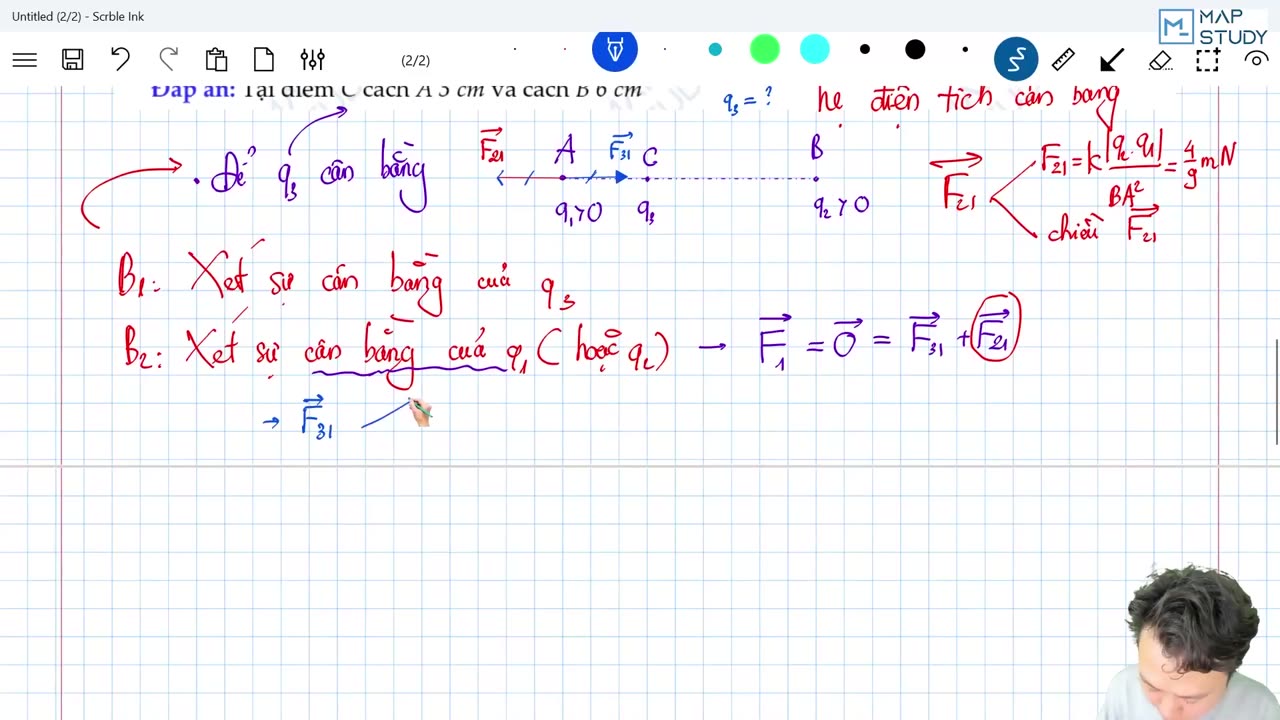 Untitled (2/2) - Scrble Ink
MAP STUDY
(2/2)
Đáp án: Tại điểm C cách A 3 cm và cách B 6 cm
q₃ = ? hệ điện tích cân bằng
• Để q₃ cân bằng
F₂₁ A F₃₁ C B
q₁>0 q₃ q₂>0
F₂₁ F₂₁ = k |q₂.q₁| / BA² = 4/9 mN
chiều F₂₁
B₁: Xét sự cân bằng của q₃
B₂: Xét sự cân bằng của q₁ (hoặc q₂) → F₁ = 0 = F₃₁ + F₂₁
→ F₃₁